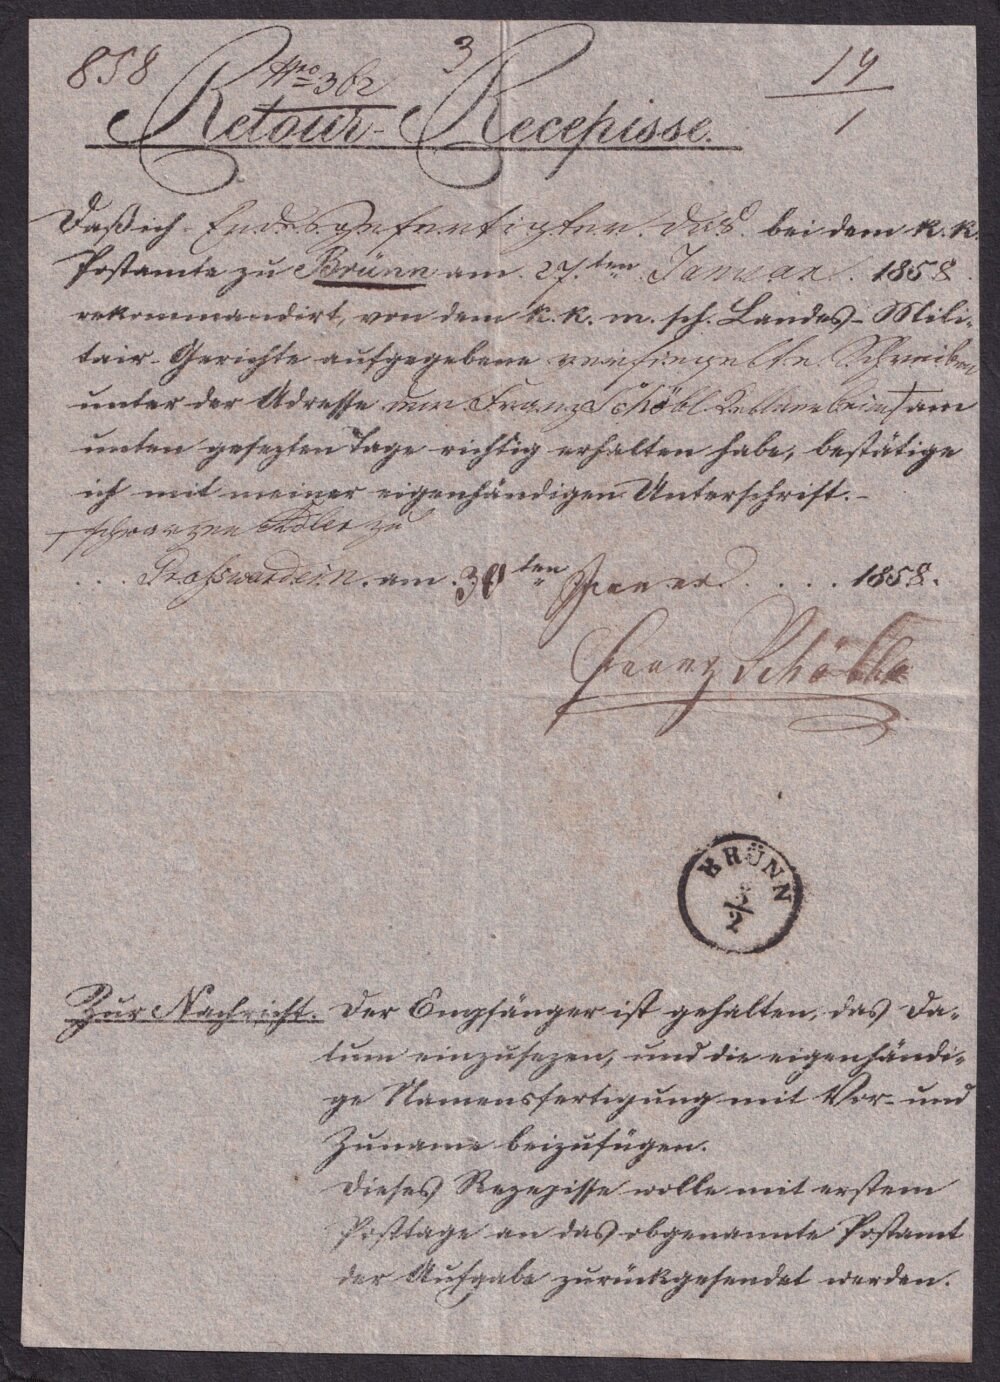 858 Nro 362 3 19/1
Retour-Recepisse.
Daß ich Endesgefertigter das bei dem k. k.
Postamte zu Brünn am 27.ten Januar 1858
rekommandirt, von dem k. k. m. sch. Landes-Mili-
tair-Gerichte aufgegebene versiegelte Schreiben
unter der Adresse von Franz Schöbl am
unten gesezten Tage richtig erhalten habe, bestätige
ich mit meiner eigenhändigen Unterschrift.-
schwarzen Adler zu
Großwardein. am. 30ten Jänner . . . . 1858.
Franz
BRÜNN
3/2
Zur Nachricht. Der Empfänger ist gehalten, das Da-
tum einzusezen, und die eigenhändi-
ge Namensfertigung mit Vor- und
Zuname beizufügen.
Dieses Rezepisse wolle mit erstem
Posttage an das obgenannte Postamt
der Aufgabe zurückgesendet werden.